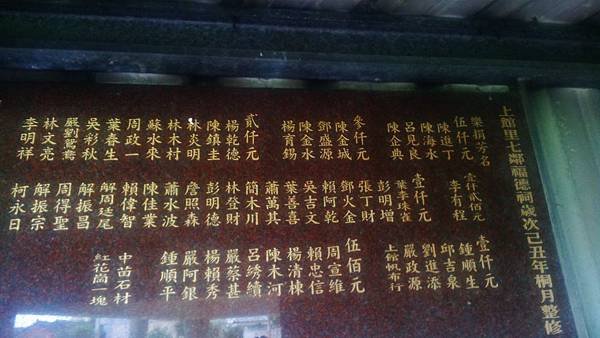 上館里七鄰福德祠歲次己丑年桐月整修
樂捐芳名
伍仟元
陳進丁
陳海水
呂見良
陳企典
參仟元
陳金城
鄧盛源
陳金水
楊育錫
貳仟元
楊乾德
陳鎮圭
林炎明
林木村
蘇水來
周政一
葉春生
吳彩秋
嚴劉鴛鴦
林文亮
李明祥
壹仟貳佰元
李有程
壹仟元
葉季珠雀
彭明增
張丁財
鄧火金
賴阿乾
吳吉文
葉善喜
蕭萬其
簡木川
林登財
彭明德
詹照森
蕭水波
陳佳業
賴偉智
解周廷尾
解振昌
周得聖
解振宗
柯永日
壹仟元
鍾順生
邱吉泉
劉進添
嚴政源
上館帆布行
伍佰元
周宣維
賴忠信
楊清棟
陳木河
呂綉續
嚴蔡甚
楊賴秀
嚴阿銀
鍾順平
中苗石材
紅花崗一塊